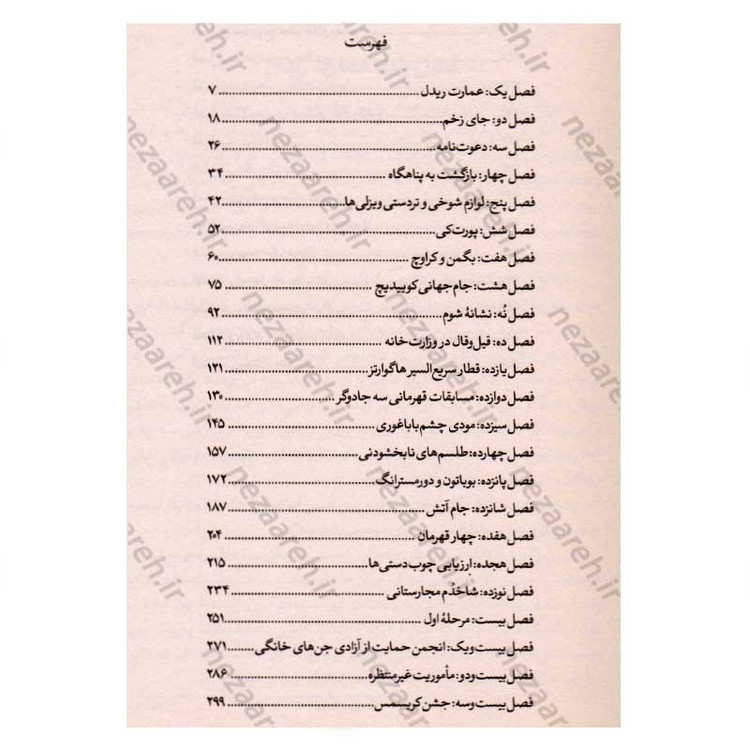 فهرست
فصل یک: عمارت ریدل ........ ۷
فصل دو: جای زخم ........ ۱۸
فصل سه: دعوت‌نامه ........ ۲۶
فصل چهار: بازگشت به پناهگاه ........ ۳۴
فصل پنج: لوازم شوخی و تردستی ویزلی‌ها ........ ۴۲
فصل شش: پورت‌کی ........ ۵۲
فصل هفت: بگمن و کراوچ ........ ۶۰
فصل هشت: جام جهانی کوییدیچ ........ ۷۵
فصل نُه: نشانهٔ شوم ........ ۹۲
فصل ده: قیل‌وقال در وزارت‌خانه ........ ۱۱۲
فصل یازده: قطار سریع‌السیر هاگوارتز ........ ۱۲۱
فصل دوازده: مسابقات قهرمانی سه جادوگر ........ ۱۳۰
فصل سیزده: مودی چشم‌باباغوری ........ ۱۴۵
فصل چهارده: طلسم‌های نابخشودنی ........ ۱۵۷
فصل پانزده: بوباتون و دورمسترانگ ........ ۱۷۲
فصل شانزده: جام آتش ........ ۱۸۷
فصل هفده: چهار قهرمان ........ ۲۰۴
فصل هجده: ارزیابی چوب‌دستی‌ها ........ ۲۱۵
فصل نوزده: شاخدُم مجارستانی ........ ۲۳۴
فصل بیست: مرحلهٔ اول ........ ۲۵۱
فصل بیست‌ویک: انجمن حمایت از آزادی جن‌های خانگی ........ ۲۷۱
فصل بیست‌ودو: مأموریت غیرمنتظره ........ ۲۸۶
فصل بیست‌وسه: جشن کریسمس ........ ۲۹۹
nezaareh.ir